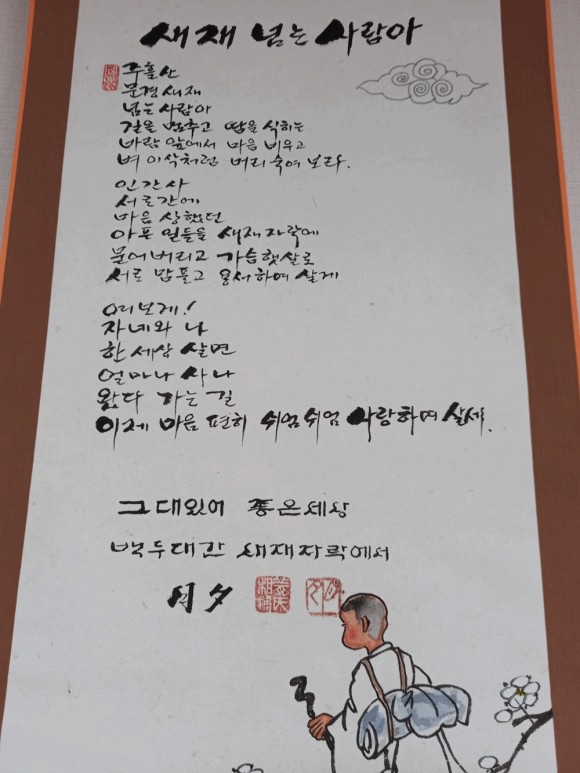 새재 넘는 사람아
주흘산
문경새재
넘는 사람아
걸음 멈추고 땀을 식히는
바람 앞에서 마음 비우고
벼 이삭처럼 머리 숙여 보라.
인간사
서로간에
마음 상했던
아픈 일들을 새재 자락에
묻어버리고 가슴햇살로
서로 맘 풀고 용서하며 살게
여보게!
자네와 나
한 세상 살면
얼마나 사나
왔다 가는 길
이제 마음 편히 쉬엄쉬엄 사랑하며 살세.
그대있어 좋은세상
백두대간 새재자락에서
月夕